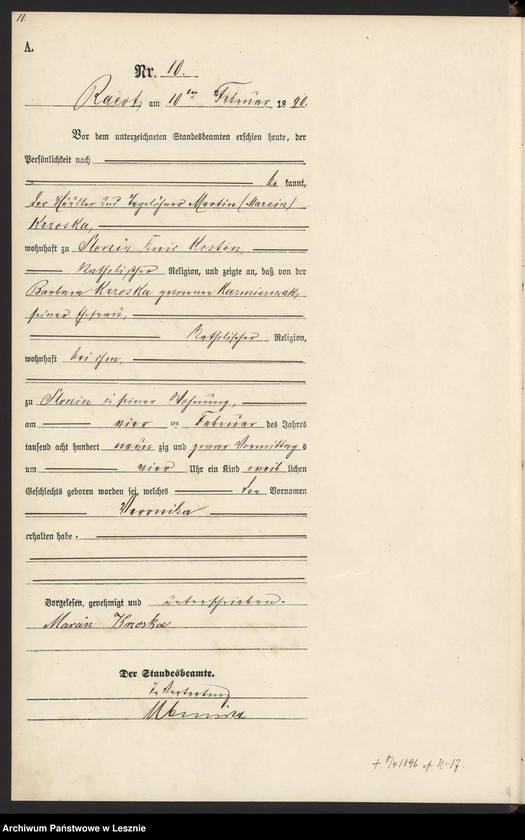 10.
A.
Nr. 10.
Racot, am 10ten Februar 1890.
Vor dem unterzeichneten Standesbeamten erschien heute, der
Persönlichkeit nach
bekannt,
der Häusler und Tagelöhner Martin (Marcin)
Kzoska,
wohnhaft zu Slonin Kreis Kosten,
Katholischer Religion, und zeigte an, daß von der
Barbara Kzoska geborenen Kazmierczak,
seiner Ehefrau,
Katholischer Religion,
wohnhaft bei ihm,
zu Slonin in seiner Wohnung,
am vierten Februar des Jahres
tausend acht hundert neunzig und zwar Vormittags
um vier Uhr ein Kind weiblichen
Geschlechts geboren worden sei, welches den Vornamen
Veronika
erhalten habe.
Vorgelesen, genehmigt und unterschrieben.
Marcin
Der Standesbeamte.
In Vertretung
+ 5/4 1896 cf. Nr. 17.
Archiwum Państwowe w Lesznie